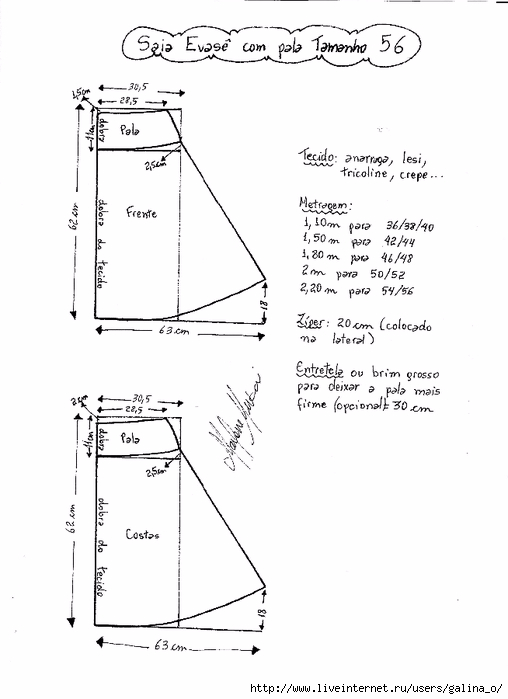 Saia Evasê com pala Tamanho 56
30,5
28,5
1,5cm
11cm
dobra
Pala
2,5cm
62 cm
dobra do tecido
Frente
18
63 cm
Tecido: anarruga, lesi,
tricoline, crepe...
Metragem:
1,10m para 36/38/40
1,50 m para 42/44
1,80m para 46/48
2m para 50/52
2,20m para 54/56
Zíper: 20cm (colocado
na lateral)
Entretela ou brim grosso
para deixar a pala mais
firme (opcional): 30 cm
30,5
28,5
2cm
11cm
dobra
Pala
2,5cm
62 cm
dobra do tecido
Costas
18
63 cm
http://www.liveinternet.ru/users/galina_o/